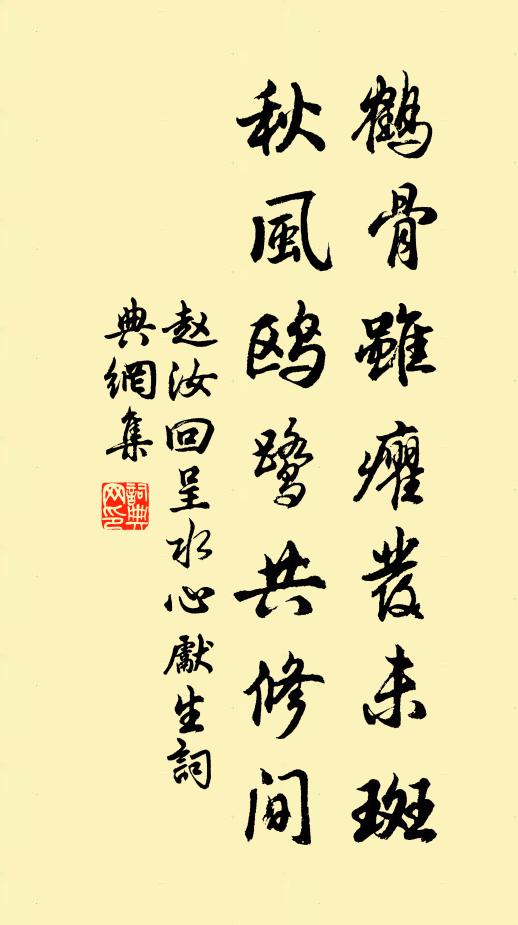 鶴骨雖癯髮未斑
秋風鷗鷺共修間
赵汝回呈水心獻生詞
典網集
詞典网印